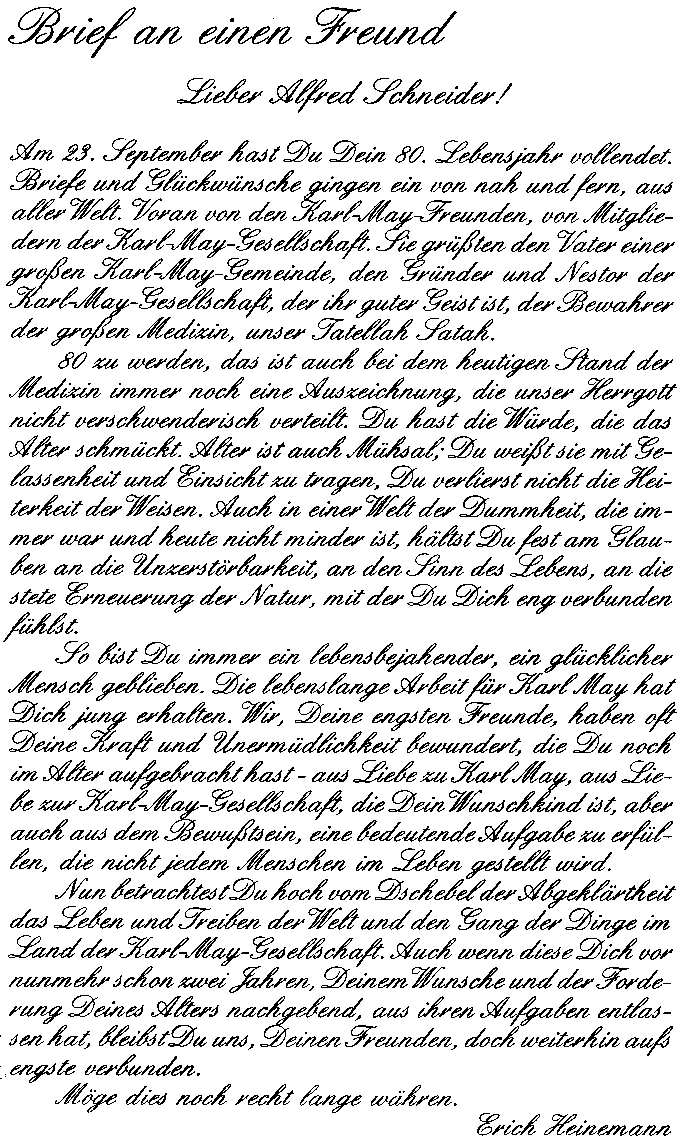 Brief an einen Freund
Lieber Alfred Schneider!
Am 23. September hast Du Dein 80. Lebensjahr vollendet.
Briefe und Glückwünsche gingen ein von nah und fern, aus
aller Welt. Voran von den Karl-May-Freunden, von Mitglie-
dern der Karl-May-Gesellschaft. Sie grüßten den Vater einer
großen Karl-May-Gemeinde, den Gründer und Nestor der
Karl-May-Gesellschaft, der ihr guter Geist ist, der Bewahrer
der großen Medizin, unser Tatellah Satah.
80 zu werden, das ist auch bei dem heutigen Stand der
Medizin immer noch eine Auszeichnung, die unser Herrgott
nicht verschwenderisch verteilt. Du hast die Würde, die das
Alter schmückt. Alter ist auch Mühsal; Du weißt sie mit Ge-
lassenheit und Einsicht zu tragen, Du verlierst nicht die Hei-
terkeit der Weisen. Auch in einer Welt der Dummheit, die im-
mer war und heute nicht minder ist, hältst Du fest am Glau-
ben an die Unzerstörbarkeit, an den Sinn des Lebens, an die
stete Erneuerung der Natur, mit der Du Dich eng verbunden
fühlst.
So bist Du immer ein lebensbejahender, ein glücklicher
Mensch geblieben. Die lebenslange Arbeit für Karl May hat
Dich jung erhalten. Wir, Deine engsten Freunde, haben oft
Deine Kraft und Unermüdlichkeit bewundert, die Du noch
im Alter aufgebracht hast - aus Liebe zu Karl May, aus Lie-
be zur Karl-May-Gesellschaft, die Dein Wunschkind ist, aber
auch aus dem Bewußtsein, eine bedeutende Aufgabe zu erfül-
len, die nicht jedem Menschen im Leben gestellt wird.
Nun betrachtest Du hoch vom Dschebel der Abgeklärtheit
das Leben und Treiben der Welt und den Gang der Dinge im
Land der Karl-May-Gesellschaft. Auch wenn diese Dich vor
nunmehr schon zwei Jahren, Deinem Wunsche und der Forde-
rung Deines Alters nachgebend, aus ihren Aufgaben entlas-
sen hat, bleibst Du uns, Deinen Freunden, doch weiterhin aufs
engste verbunden.
Möge dies noch recht lange währen.
Erich Heinemann